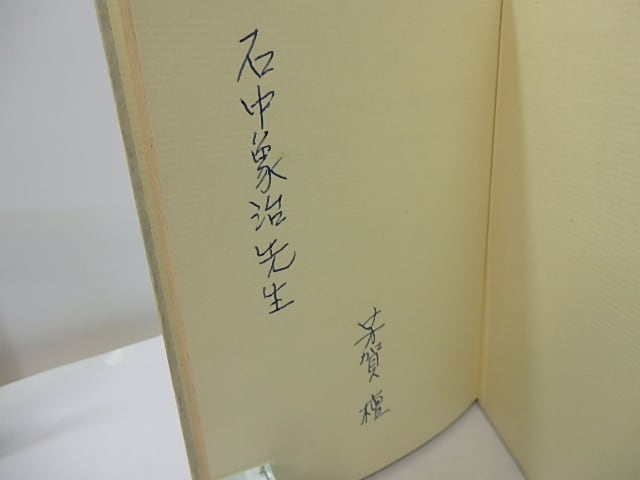 石中象治先生
芳賀檀